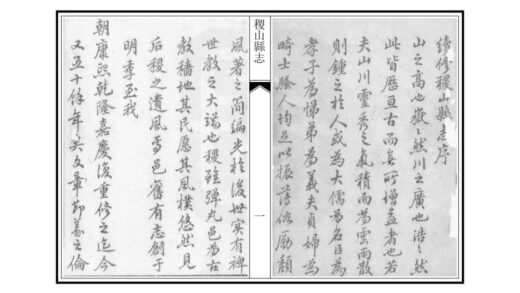 續修稷山縣志序
山之高也嶽嶽然川之廣也浩浩然
此皆歷亘古而無所增益者也若
夫山川靈秀之氣積而為雲雨散
則鍾之於人或為大儒為名臣為
孝子為悌弟為義夫貞婦為
畸士騷人均足以振薄俗勵頹
稷山縣志
一
風著之簡編光於後世實有裨
世教之大端也稷雖彈丸邑為古
教穡地其民愿其風樸悠然見
后稷之遺風焉邑舊有志創于
明季至我
朝康熙乾隆嘉慶復重修之迄今
又五十餘年矣文章節義之倫